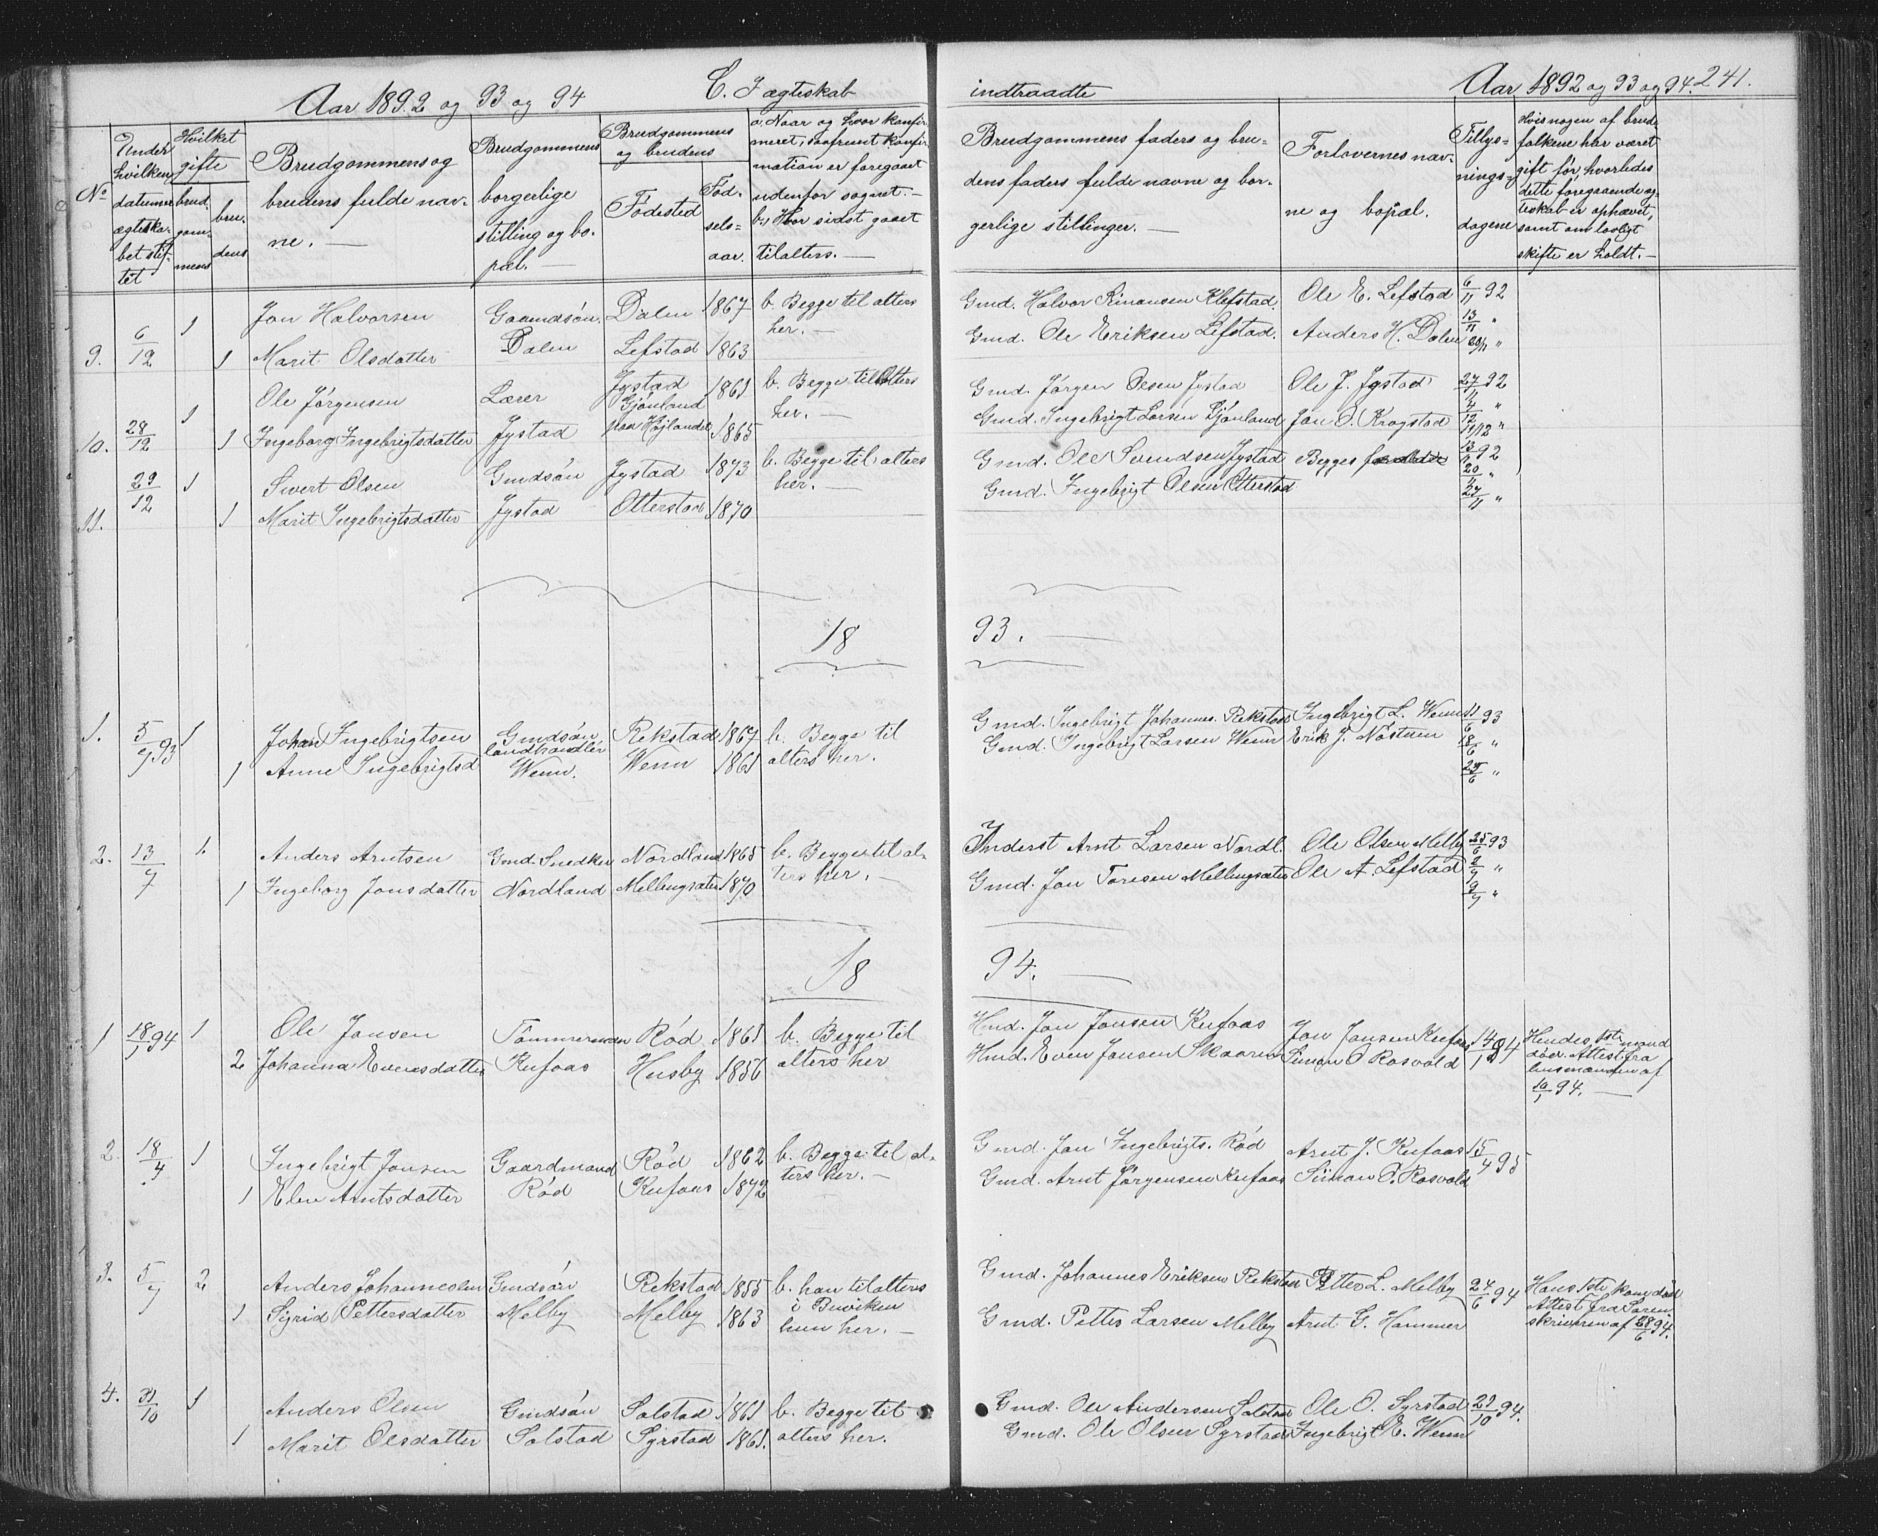 Aar 1892 og 93 og 94
C. Ægteskab
indtraadte
Aar 1892 og 93 og 94. 241.
No
Under hvilken datum ægteska- bet stif- tet
Hvilket gifte
brud- gom- mens
bru- dens
Brudgommens og
brudens fulde nav-
ne. —
Brudgommens
borgerlige
stilling og bo-
pæl. —
Brudgommens
og brudens
Fødested
Fød-
sels=
aar.
a. Naar og hvor konfir-
meret, saafremt konfir-
mation er foregaaet
udenfor sognet. —
b. Hvor sidst gaaet
til alters. —
Brudgommens faders og bru-
dens faders fulde navne og bor-
gerlige stillinger. —
Forlovernes nav-
ne og bopæl.
Tillys=
nings=
dagene
Hvis nogen af brude
folkene har været
gift før, hvorledes
dette foregaaende æg
teskab er ophævet,
samt om lovligt
skifte er holdt. —
9. 6/12 1 Jon Halvorsen Gaardsøn Dalen 1867 b. Begge til alters Gmd. Halvor Simonsen Klefstad. Ole E. Lefstad 6/11 92
1 Marit Olsdatter Dalen Lefstad 1863 her. — Gmd. Ole Eriksen Lefstad. Anders H. Dalen 13/11 " 20/11 "
10. 28/12 1 Ole Jørgensen Lærer Jystad 1861 b. Begge til alters Gmd. Jørgen Olsen Jystad Ole J. Jystad 27/11 92
1 Ingeborg Ingebrigtsdatter Jystad Gjønland paa Højlandet 1865 her. — Gmd. Ingebrigt Larsen Gjønland Jon O. Krogstad 4/12 " 11/12 "
11. 29/12 1 Sivert Olsen Gmdsøn Jystad 1873 b. Begge til alters Gmd. Ole Svendsen Jystad Begges fædre 13/11 92
1 Marit Ingebrigtsdatter Jystad Otterstad 1870 her. — Gmd. Ingebrigt Olsen Otterstad 20/11 " 27/11 "
18 93.
1. 5/7 93 1 Johan Ingebrigtsen Gmdsøn landhandler Rekstad 1867 b. Begge til Gmd. Ingebrigt Johannes. Rekstad Ingebrigt L. Wenn 11/6 93
1 Anne Ingebrigtsd Wenn. Wenn 1861 alters her. Gmd. Ingebrigt Larsen Wenn Erik J. Nøstuen 18/6 " 25/6 "
2. 13/7 1 Anders Arntsen Gmd. Snedker Nordland 1865 b. Begge til al- Inderst Arnt Larsen Nordl. Ole Olsen Melby 25/6 93
1 Ingeborg Jonsdatter Nordland Melbingsæter 1870 ters her. — Gmd. Jon Toresen Melbingsæter Ole A. Lefstad 2/7 " 9/7 "
18 94.
1 18/1 94 1 Ole Jonsen Tømmermand Rød 1861 b. Begge til Hmd. Jon Jonsen Kufaas Jon Jonsen Kufaas 14/1 94 Hendes 1ste mand
2 Johanna Evensdatter Kufaas Husby 1856 alters her Hmd. Even Jonsen Skaaren Simon O. Rosvold død. Attest fra
lensmanden af
10/1 94. —
2. 18/4 1 Ingebrigt Jonsen Gaardmand Rød 1862 b. Begge til al- Gmd. Jon Ingebrigts. Rød Arnt J. Kufaas 15/4 95
1 Elen Arntsdatter Rød Kufaas 1872 ters her. — Gmd. Arnt Jørgensen Kufaas Simon O. Rosvold
3. 5/7 2 Anders Johannesen Gmdsøn Rekstad 1855 b. han til alters Gmd. Johannes Eriksen Rekstad Petter L. Melby 24/6 94 Hans 1ste kone død
1 Sigrid Pettersdatter Melby Melby 1863 i Buviken Gmd. Petter Larsen Melby Arnt G. Hammer Attest fra Soren
hun her. — skriveren af 28/6 94.
4. 31/10 1 Anders Olsen Gmdsøn Solstad 1861 b. Begge til Gmd. Ole Andersen Solstad Ole O. Syrstad 29/10 94.
1 Marit Olsdatter Solstad Syrstad 1861. alters her. Gmd. Ole Olsen Syrstad Ingebrigt E. Wenn